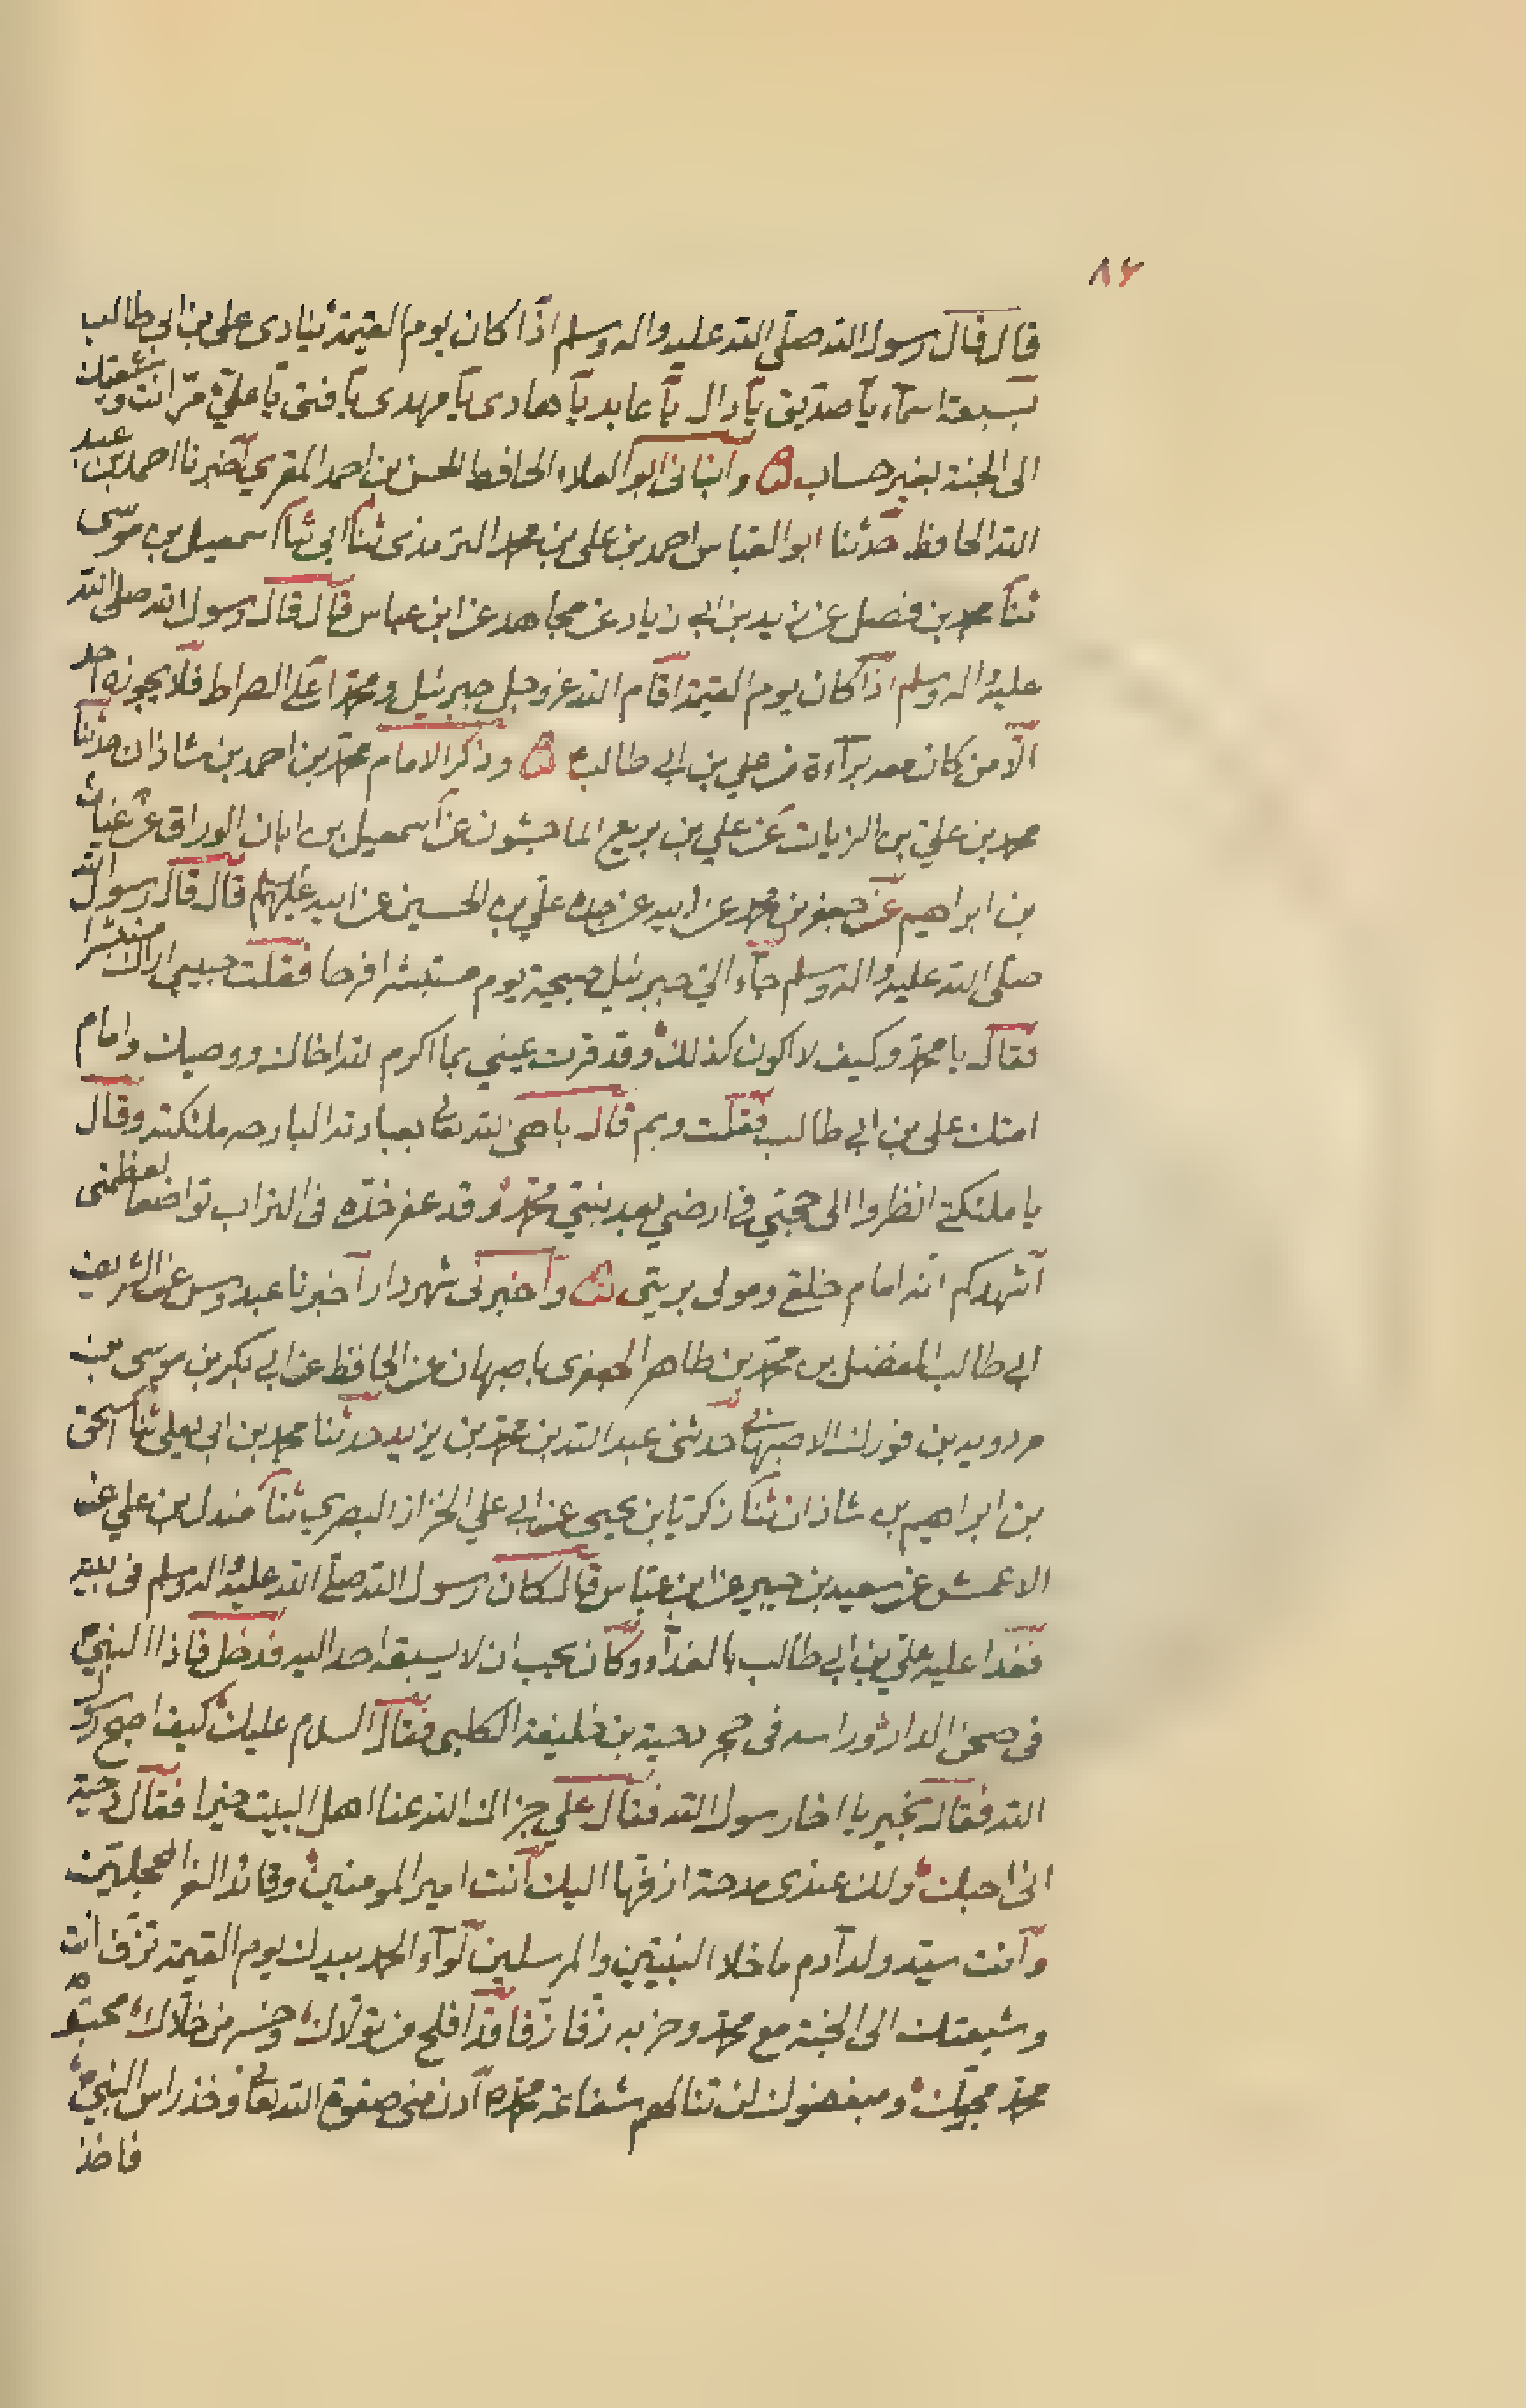 ٨٤
قال قال رسول الله صلى الله عليه واله وسلم اذا كان يوم القيمة ينادى على بن ابى طالب
بسبعة اسمآء يآ صديق يآ دال يآ عابد يآ هادى يآ مهدى يآ فتى يآ علىّ مرّ انت وشيعتك
الى الجنة بغير حساب وأنبانى ابو العلاء الحافظ الحسن بن احمد المقرى أخبرنا احمد بن عبد
الله الحافظ حدثنا ابو العباس احمد بن على بن محمد الترمذى ثنا ابى ثنا اسمعيل بن موسى
ثنا محمد بن فضيل عن يزيد بن ابى زياد عن مجاهد عن ابن عباس قال قال رسول الله صلى الله
عليه واله وسلم اذا كان يوم القيمة اقام الله عز وجل جبرئيل ومحمدا على الصراط فلا يجوزه احد
الّا من كان معه برآءة من علي بن ابى طالب وذكر الامام محمد بن احمد بن شاذان حدثنا
محمد بن علي بن الزيات عن علي بن بريع الماجشون عن اسمعيل بن ابان الوراق عن غياث
بن ابراهيم عن جعفر بن محمد عن ابيه عن جده علي بن الحسين عن ابيه عليهم قال قال رسول الله
صلى الله عليه واله وسلم جآء الي جبرئيل صبيحة يوم مستبشرا فرحا فقلت حبيبى اراك مستبشرا
فقال يا محمد وكيف لا اكون كذلك وقد قرت عيني بما اكرم الله اخاك ووصيك وامام
امتك على بن ابى طالب فقلت وبم قال باهى الله تعا بعبادته البارحه ملئكته وقال
يا ملئكتى انظروا الى حجتي في ارضي بعد بنيتي محمد وقد عفر خدّه فى التراب تواضعا لعظمتى
أشهدكم انه امام خلقى ومولى بريتى وأخبرنى شهردار أخبرنا عبدوس عن الشريف
ابى طالب المفضل بن محمد بن طاهر الجعفرى باصبهان عن الحافظ عن ابى بكر بن موسى بن
مردويه بن فورك الاصبهانى حدثنى عبد الله بن محمد بن يزيد حدثنا محمد بن ابى يعلى ثنا اسحق
بن ابراهيم بن شاذان ثنا زكريّا بن يحيى عن ابى علي الخزاز البصري ثنا مندل بن علي عن
الاعمش عن سعيد بن جبير عن ابن عبّاس قال كان رسول الله صلى الله عليه واله وسلم فى بيته
فغدا عليه علي بن ابى طالب بالغداة وكان يحب ان لا يسبقه احد اليه فدخل فاذا النبيّ
فى صحن الدار وراسه فى حجر دحية بن خليفة الكلبى فقال السلام عليك كيف اصبح رسول
الله فقال بخير يا اخا رسول الله فقال علي جزاك الله عنا اهل البيت خيرا فقال دحية
انى احبك ولك عندى مدحة ازفّها اليك أنت امير المومنين وقائد الغر المحجلين
وأنت سيّد ولد آدم ما خلا النبيين والمرسلين لوآء الحمد بيدك يوم القيمة تزف انت
وشيعتك الى الجنة مع محمد وحزبه زفا زفا قد افلح من تولّاك وخسر من خلّاك محبّو
محمد محبّوك ومبغضوك لن تنالهم شفاعة محمد أدن منى صفوة الله تعا فاخذ راس النبي
فاخذ